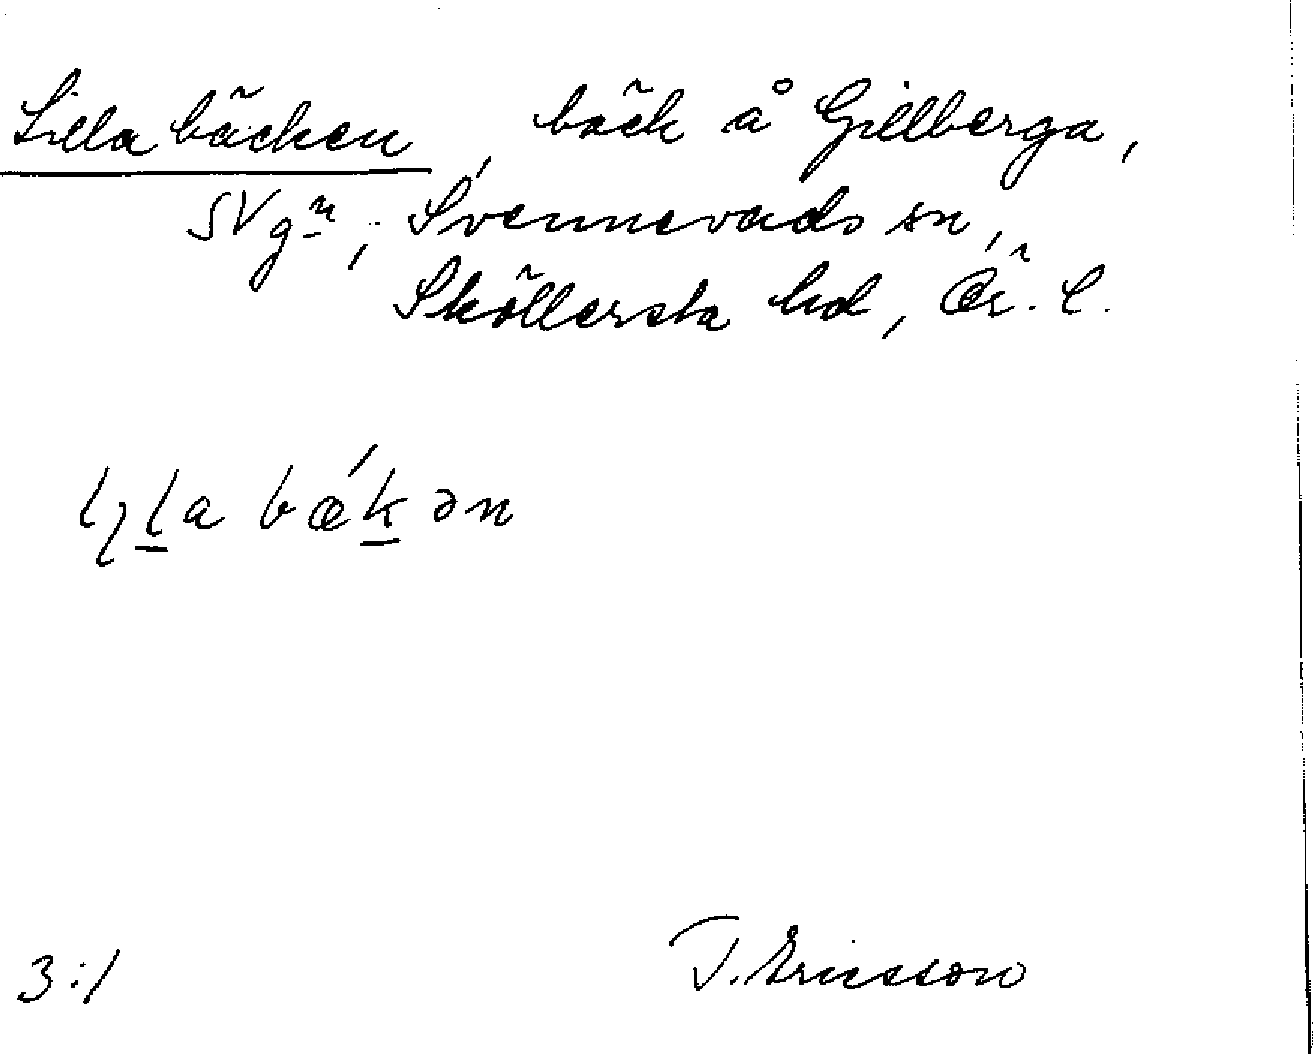 Lilla bäcken, bäck å Gillberga,
SVgn, Svennevads sn,
Sköllersta hd, Ör. l.
lɩla bǽkən
3:1 T. Ericsson